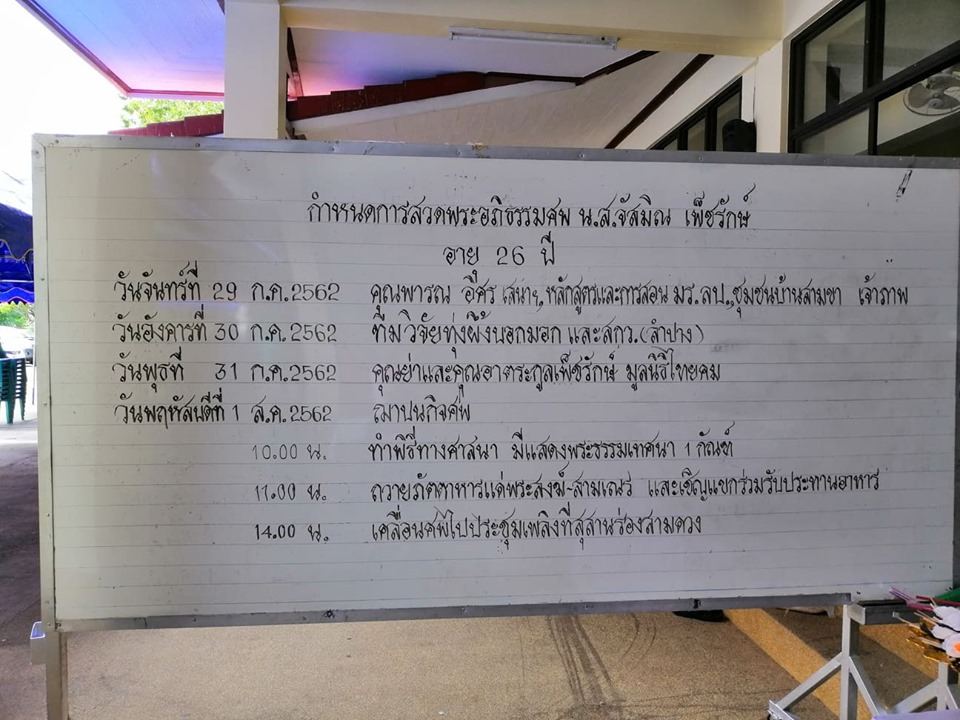 กำหนดการสวดพระอภิธรรมศพ น.ส.จัสมิณ เพ็ชรักษ์
อายุ 26 ปี
วันจันทร์ที่ 29 ก.ค.2562 คุณพารณ อิศรเสนาฯ, หลักสูตรและการสอน มร.ลป., ชุมชนบ้านสามขา เจ้าภาพ
วันอังคารที่ 30 ก.ค.2562 ทีมวิจัยทุ่งผึ้งนอกมอก และสกว.(ลำปาง)
วันพุธที่ 31 ก.ค.2562 คุณย่าและคุณอาตระกูลเพ็ชรักษ์ มูลนิธิไทยคม
วันพฤหัสบดีที่ 1 ส.ค.2562 ฌาปนกิจศพ
10.00 น. ทำพิธีทางศาสนา มีแสดงพระธรรมเทศนา 1 กัณฑ์
11.00 น. ถวายภัตตาหารแด่พระสงฆ์-สามเณร และเชิญแขกร่วมรับประทานอาหาร
14.00 น. เคลื่อนศพไปประชุมเพลิงที่สุสานร่องสามดวง